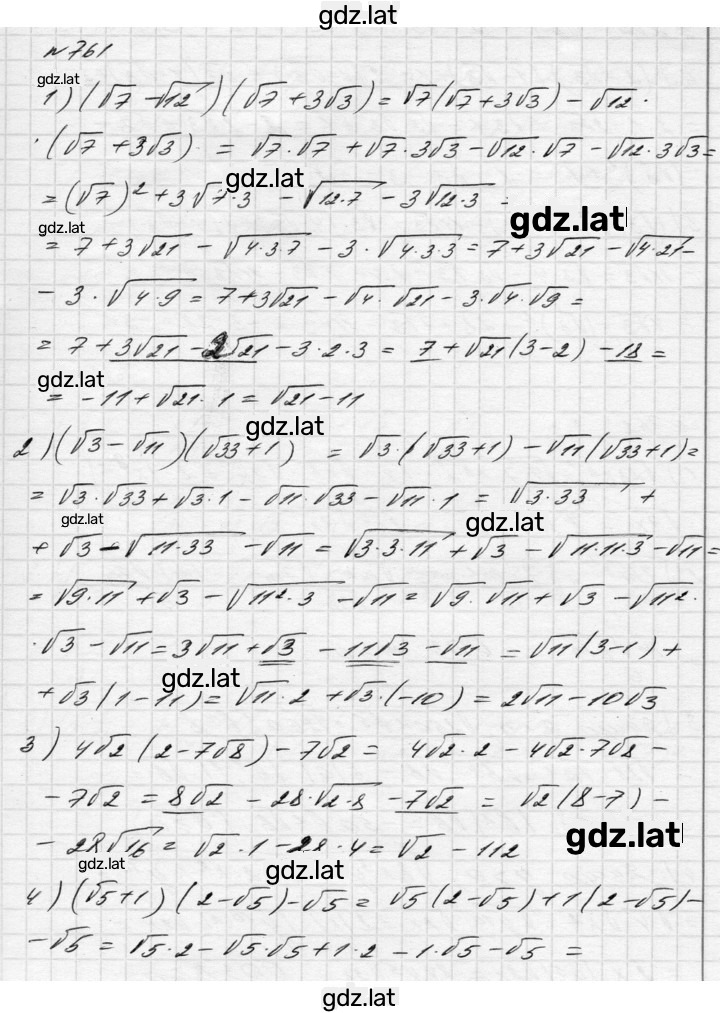 gdz.lat
№761
gdz.lat
1) (√7 - √12) (√7 + 3√3) = √7(√7 + 3√3) - √12 ·
· (√7 + 3√3) = √7 · √7 + √7 · 3√3 - √12 · √7 - √12 · 3√3 =
gdz.lat
= (√7)² + 3√7·3 - √12·7 - 3√12·3 =
gdz.lat
gdz.lat
= 7 + 3√21 - √4·3·7 - 3 · √4·3·3 = 7 + 3√21 - √4·21 -
- 3 · √4·9 = 7 + 3√21 - √4 · √21 - 3·√4·√9 =
= 7 + 3√21 - 2√21 - 3·2·3 = 7 + √21(3-2) - 18 =
gdz.lat
= -11 + √21 · 1 = √21 - 11
gdz.lat
2) (√3 - √11)(√33 + 1) = √3·(√33 + 1) - √11(√33 + 1) =
= √3·√33 + √3·1 - √11·√33 - √11·1 = √3·33 +
gdz.lat
gdz.lat
+ √3 - √11·33 - √11 = √3·3·11 + √3 - √11·11·3 - √11 =
= √9·11 + √3 - √11²·3 - √11 = √9·√11 + √3 - √11² ·
· √3 - √11 = 3√11 + √3 - 11√3 - √11 = √11(3-1) +
gdz.lat
+ √3(1-11) = √11·2 + √3·(-10) = 2√11 - 10√3
3) 4√2(2-7√8) - 7√2 = 4√2·2 - 4√2·7√8 -
- 7√2 = 8√2 - 28·√2·8 - 7√2 = √2(8-7) -
- 28√16 = √2·1 - 28·4 = √2 - 112
gdz.lat
gdz.lat
gdz.lat
4) (√5+1)(2-√5) - √5 = √5(2-√5) + 1(2-√5) -
- √5 = √5·2 - √5·√5 + 1·2 - 1·√5 - √5 =
gdz.lat